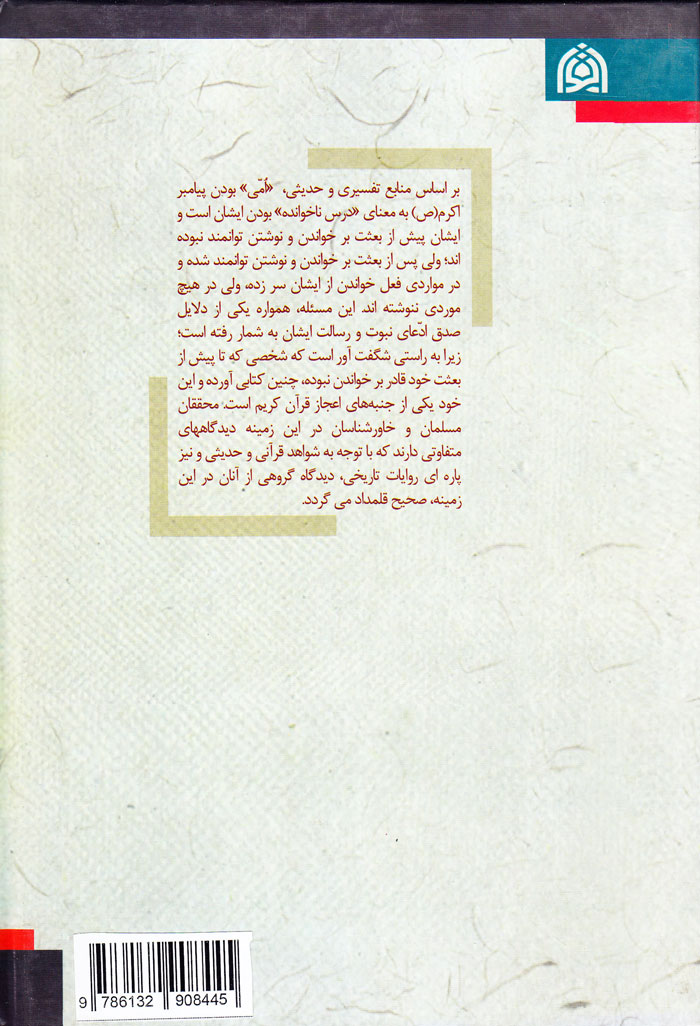 بر اساس منابع تفسیری و حدیثی، «اُمّی» بودن پیامبر
اکرم(ص) به معنای «درس ناخوانده» بودن ایشان است و
ایشان پیش از بعثت بر خواندن و نوشتن توانمند نبوده
اند؛ ولی پس از بعثت بر خواندن و نوشتن توانمند شده و
در مواردی فعل خواندن از ایشان سر زده، ولی در هیچ
موردی ننوشته اند. این مسئله، همواره یکی از دلایل
صدق ادّعای نبوت و رسالت ایشان به شمار رفته است؛
زیرا به راستی شگفت آور است که شخصی که تا پیش از
بعثت خود قادر بر خواندن نبوده، چنین کتابی آورده و این
خود یکی از جنبه‌های اعجاز قرآن کریم است. محققان
مسلمان و خاورشناسان در این زمینه دیدگاههای
متفاوتی دارند که با توجه به شواهد قرآنی و حدیثی و نیز
پاره ای روایات تاریخی، دیدگاه گروهی از آنان در این
زمینه، صحیح قلمداد می گردد.
9 786132 908445